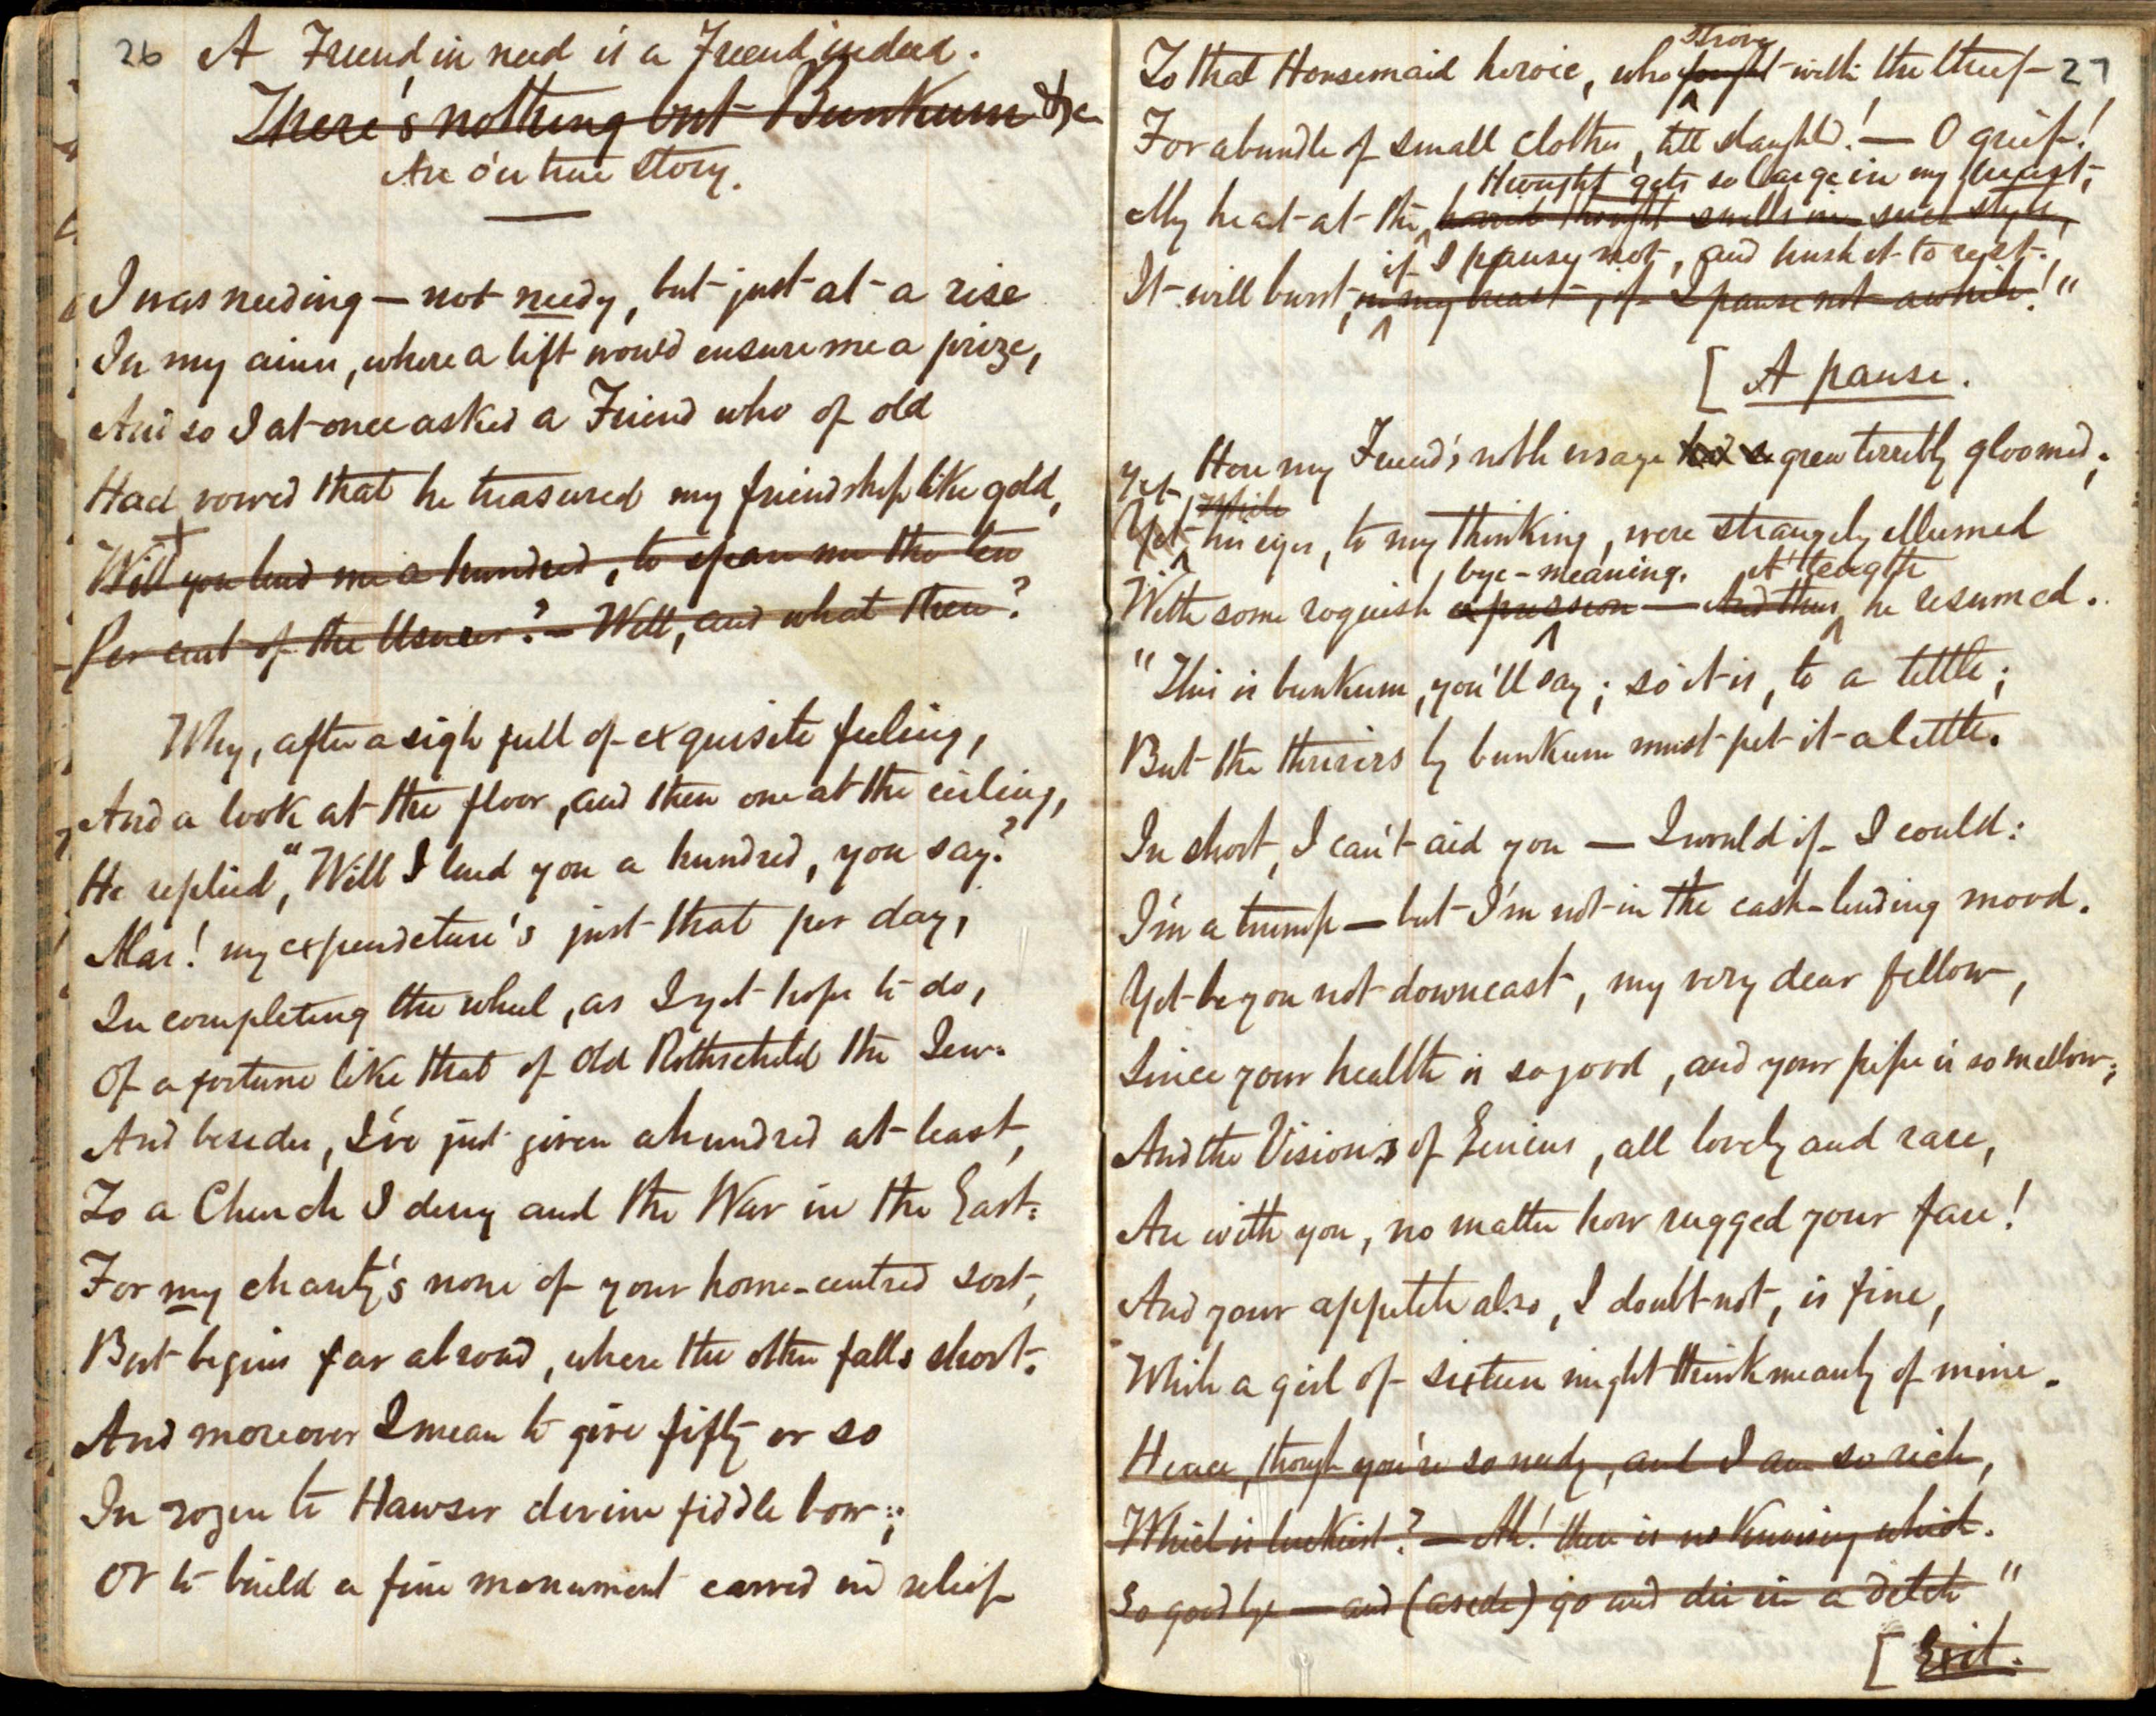 26 A Friend in need is a Friend indeed.
There's nothing but Bunkum &c
An o'er true story.
I was needing — not needy, but just at a rise
In my aims, where a lift would ensure me a prize,
And so I at once asked a Friend who of old
Had vowed that he treasured my friendship like gold,
Will you lend me a hundred, to spare me the ten
Per cent of the Usurer? — Well, and what then?
Why, after a sigh full of exquisite feeling,
And a look at the floor, and then one at the ceiling,
He replied, "Will I lend you a hundred, you say?
Alas! my expenditure's just that per day,
In completing the wheel, as I yet hope to do,
Of a fortune like that of Old Rothschild the Jew.
And besides, I've just given a hundred at least,
To a Church I deny and the War in the East:
For my charity's none of your home-centred sort,
But begins far abroad, where the other falls short.
And moreover I mean to give fifty or so
In rozin to Hawser divine fiddle bow;
Or to build a fine monument carved in relief
27
strove
To that Housemaid heroic, who fought with the thief
For a bundle of small clothes, till slaught'd! — O grief!
thought gets so large in my breast,
My heart at the horrid thought swells in such style,
if I pause not, and hush it to rest.
It will burst, in my breast, if I pause not awhile!"
[ A pause.
Here my Friend's noble visage had grew terribly gloomed;
Yet While
Yet his eyes, to my thinking, were strangely illumed
bye-meaning. At length
With some roguish expression — And thus he resumed.
"This is bunkum, you'll say; so it is, to a tittle;
But the thrivers by bunkum must pet it a little.
In short, I can't aid you — I would if I could:
I'm a trump — but I'm not in the cash-lending mood.
Yet be you not downcast, my very dear fellow,
Since your health is so good, and your pipe is so mellow;
And the Visions of Genius, all lovely and rare,
Are with you, no matter how rugged your fare!
And your appetite also, I doubt not, is fine,
While a girl of sixteen might think meanly of mine.
Hence, though you're so needy, and I am so rich,
Which is luckiest? — Ah! there is no knowing which.
So good bye — and (aside) go and die in a ditch"
[ Exit.